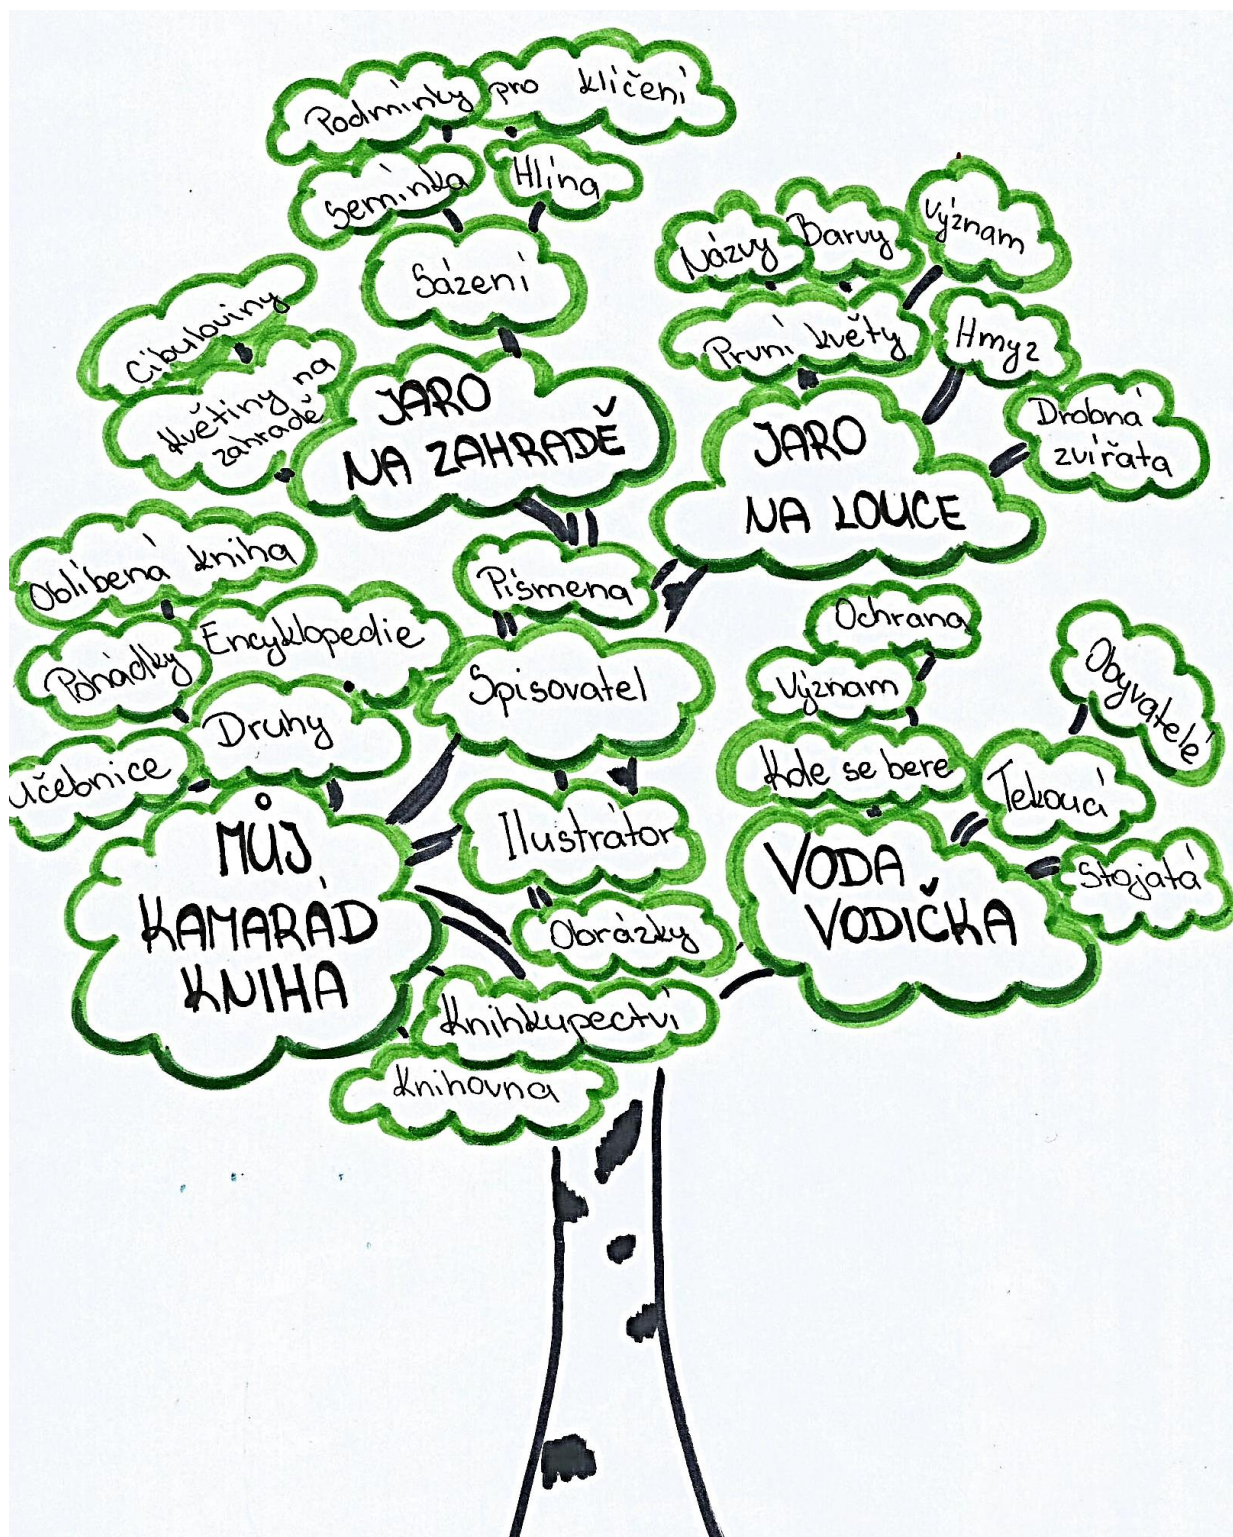 Podmínky pro klíčení
Semínka
Hlína
Sázení
Cibuloviny
Květiny na
zahradě
JARO
NA ZAHRADĚ
Názvy
Barvy
Význam
První květy
Hmyz
Drobná
zvířata
JARO
NA LOUCE
Oblíbená kniha
Pohádky
Encyklopedie
Druhy
Učebnice
Písmena
Spisovatel
Ilustrátor
Obrázky
MŮJ
KAMARÁD
KNIHA
Knihkupectví
Knihovna
Ochrana
Význam
Kde se bere
Obyvatelé
Tekoucí
Stojatá
VODA
VODIČKA